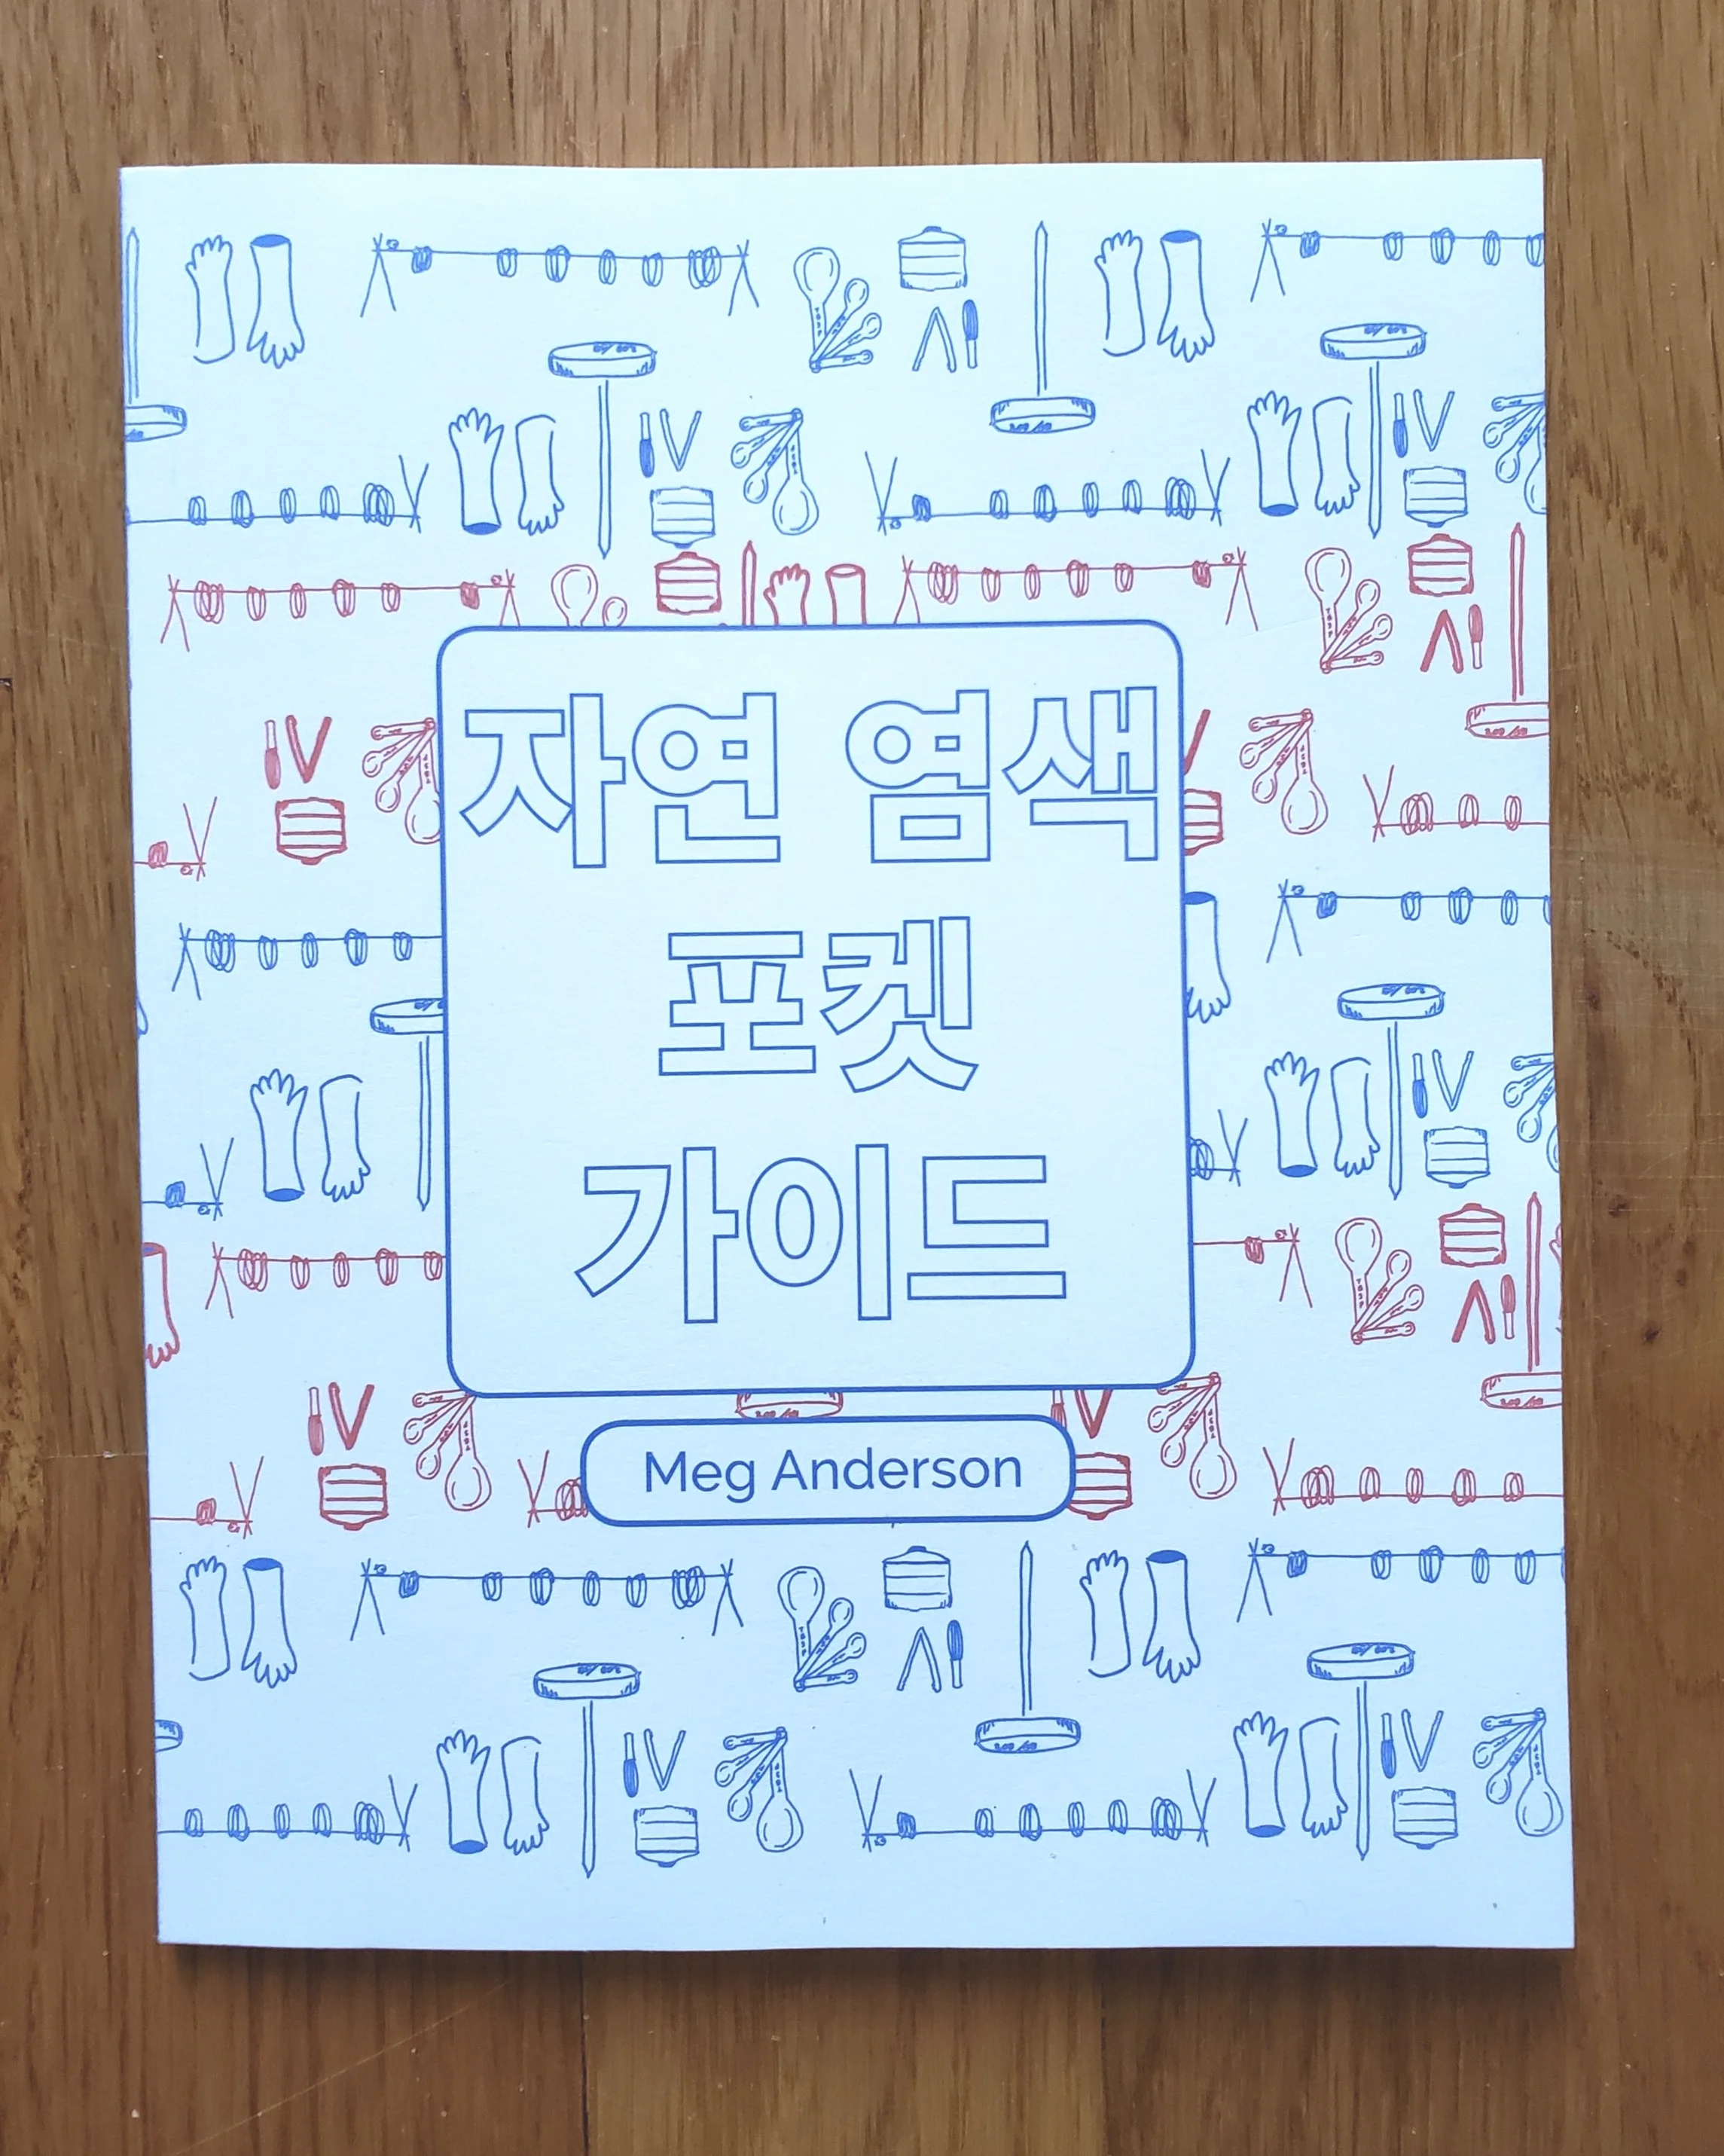 자연 염색
포켓
가이드
Meg Anderson